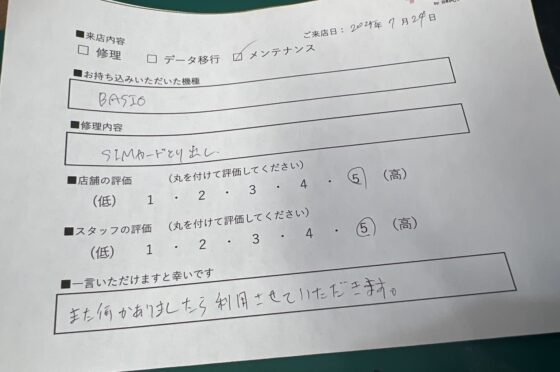 ■来店内容
ご来店日：2024年7月29日
□ 修理 □ データ移行 ☑ メンテナンス
■お持ち込みいただいた機種
BASIO
■修理内容
SIMカードとり出し
■店舗の評価 （丸を付けて評価してください）
（低） 1 ・ 2 ・ 3 ・ 4 ・ ⑤ （高）
■スタッフの評価 （丸を付けて評価してください）
（低） 1 ・ 2 ・ 3 ・ 4 ・ ⑤ （高）
■一言いただけますと幸いです
また何かありましたら利用させていただきます。